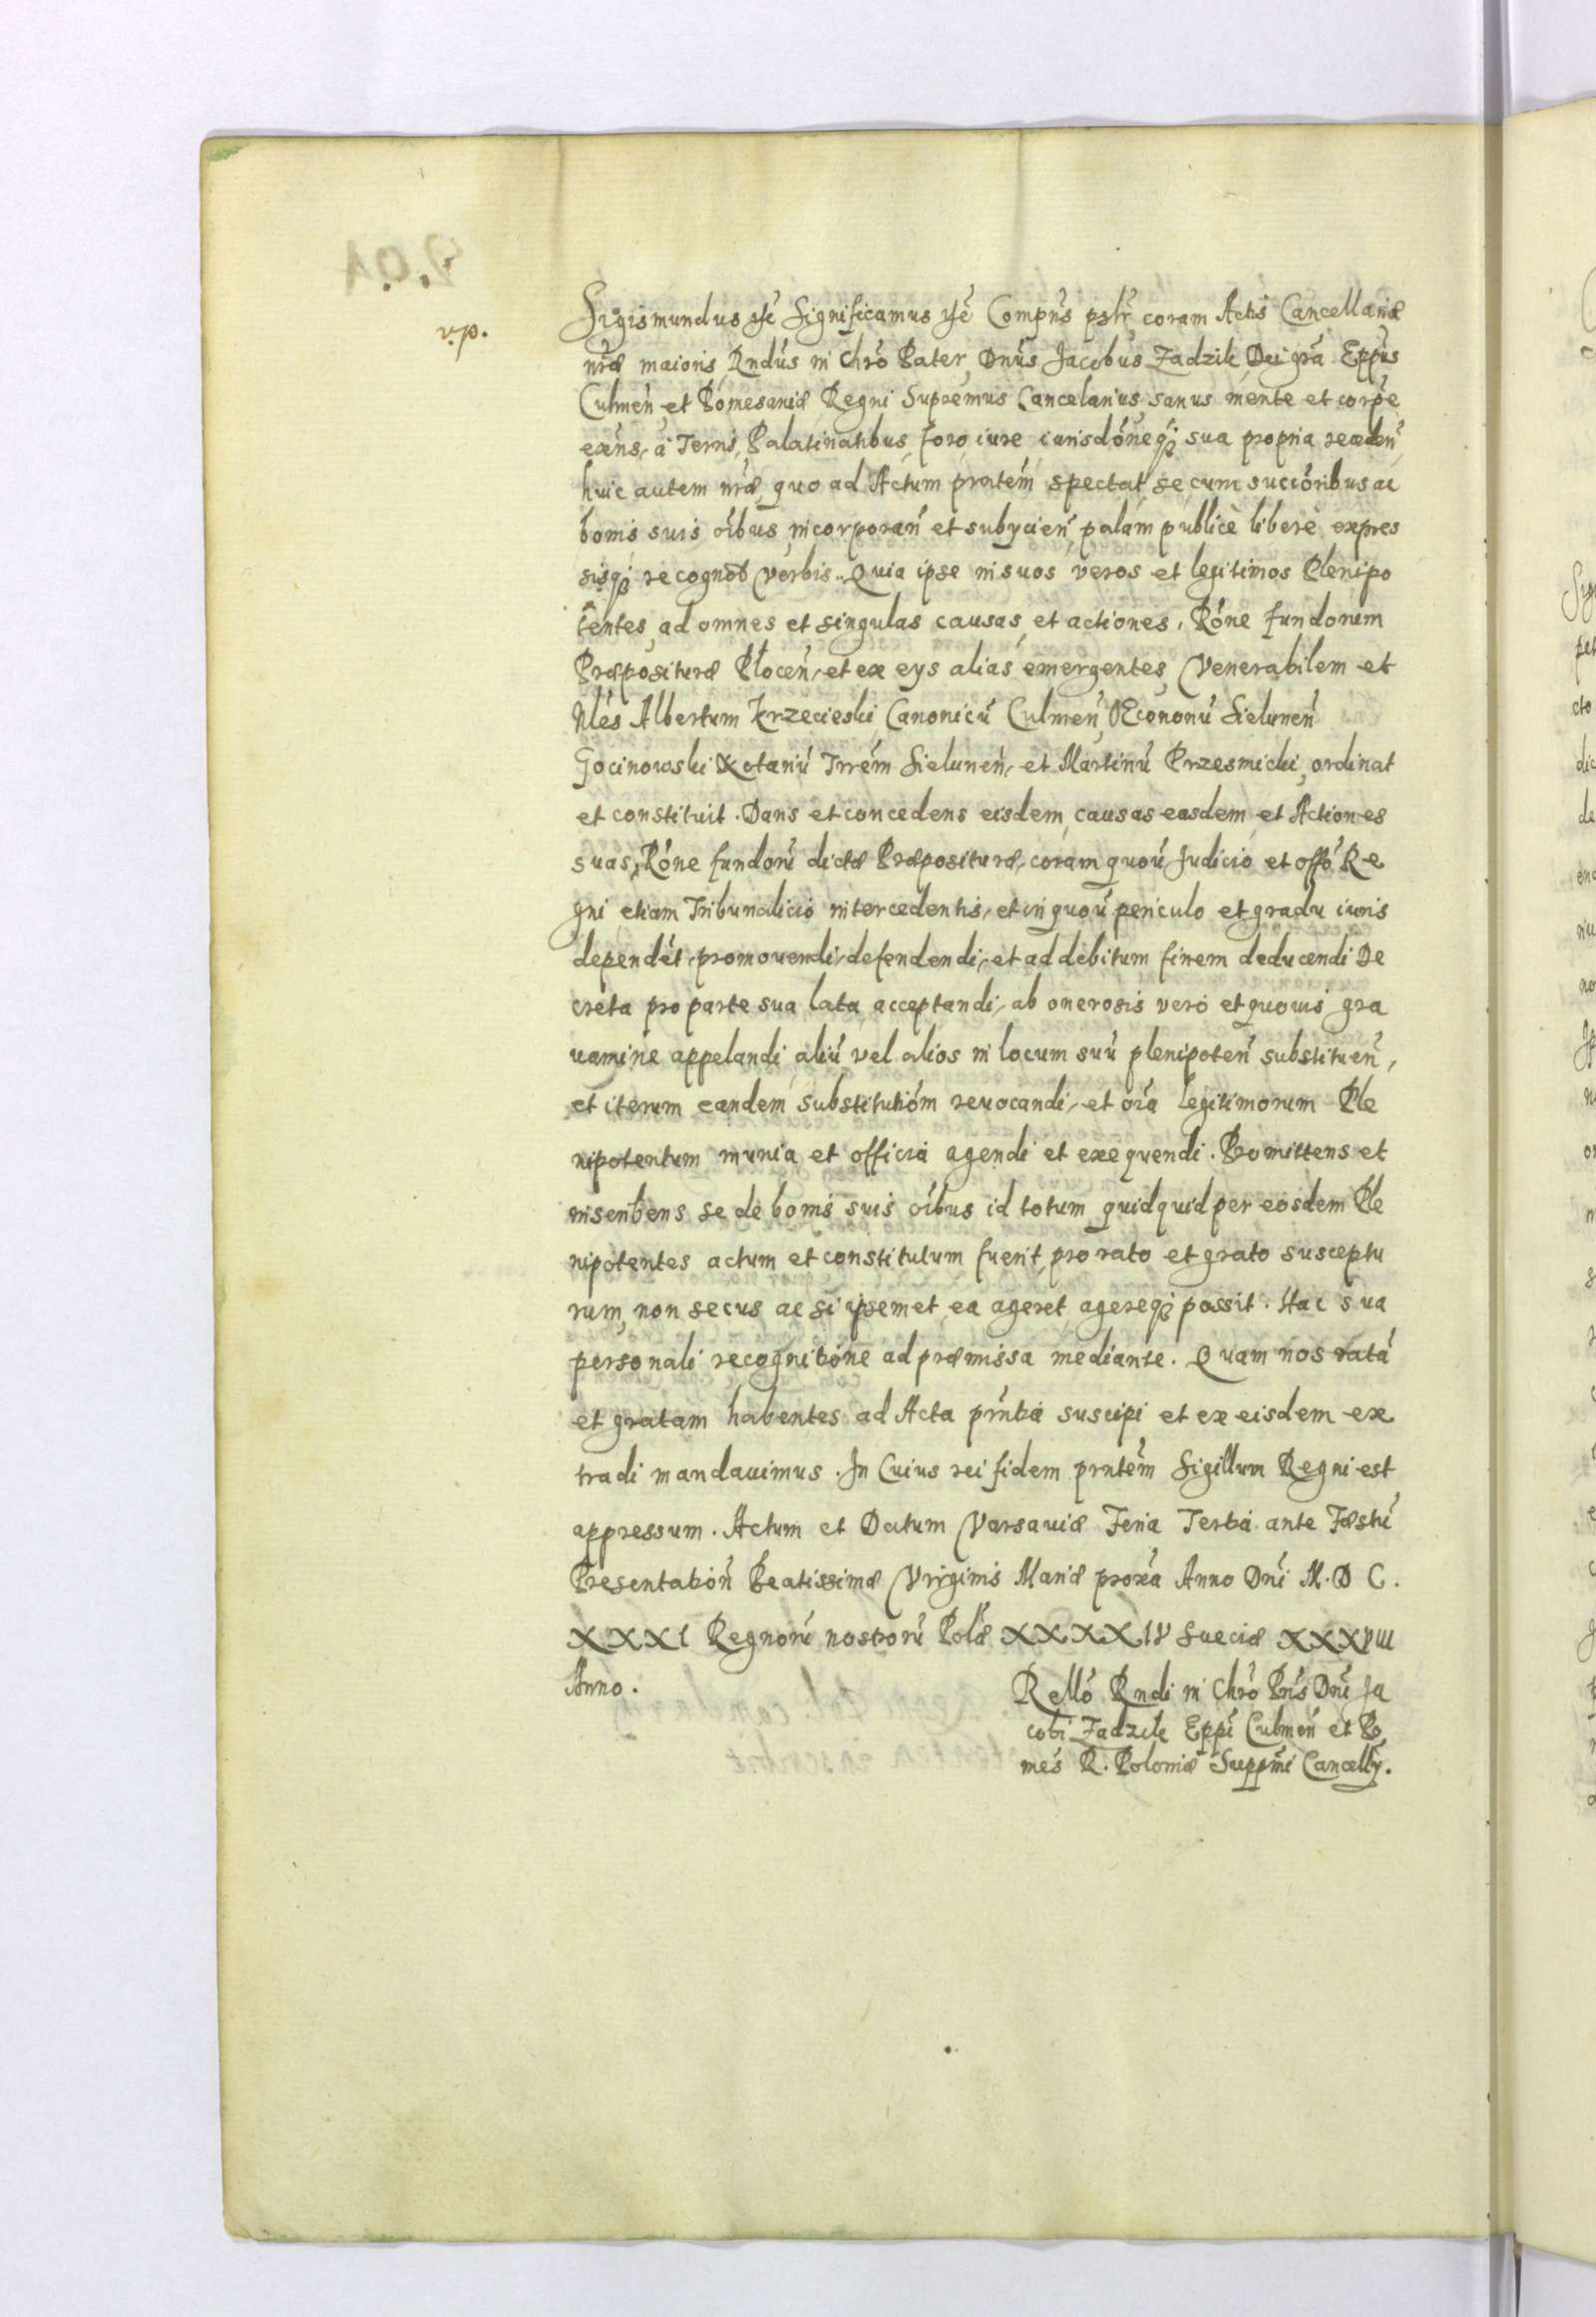 v.p.
Sigismundus ꝛc̃ Significamus ꝛc̃ Compñs pslr̃ coram Actis Cancellariæ
nr̃æ maioris, Rndũs in Chrõ Pater Dnũs Jacobus Zadzik Dei grã Eppũs
Culmeñ et Pomesaniæ Regni Supremus Cancelarius, sanus mente et corpẽ
exẽns, à Terris, Palatinatibus, foro, iure, iurisdõneq; sua propria recedeñ,
huic autem nr̃æ, quo ad Actum prñtem spectat, se cum succõribus ac
bonis suis oĩbus incorporañ et subycieñ, palam publicè liberè expres
sisq; recognõt verbis. Quia ipse in suos veros et legitimos Plenipo
tentes, ad omnes et singulas causas, et actiones, Rõne fundorum
Præpositurę Płoceñ, et ex eys alias emergentes, Venerabilem et
Nłes Albertum Krzecieski Canonicũ Culmeñ, OEconomũ Sieluneñ
Gocinowski Notariũ Trrẽm Sieluneñ, et Martinũ Przesmicki, ordinat
et constituit. Dans et concedens eisdem, causas easdem, et Actiones
suas, Rõne fundorũ dictæ Præposituræ, coram quoũ Judicio et offõ Re
gni etiam Tribunalicio intercedentis, et in quoũ periculo et gradu iuris
dependẽt, promouendi, defendendi, et ad debitum finem deducendi De
creta pro parte sua lata acceptandi, ab onerosis verò et quouis gra
uamine appelandi, aliũ vel alios in locum suũ plenipoteñ substitueñ,
et iterum eandem substitutiõm reuocandi, et oĩa legitimorum Ple
nipotentum munia et officia agendi et exequendi. Promittens et
inscribens se de bonis suis oĩbus id totum quidquid per eosdem Ple
nipotentes actum et constitutum fuerit, pro rato et grato susceptu
rum, non secus ac si ipsemet ea ageret, agereq; possit. Hac sua
personali recognitiõne ad præmissa mediante. Quam nos ratã
et gratam habentes ad Acta prñtia suscipi et ex eisdem ex
tradi mandauimus. In Cuius rei fidem prñtẽm Sigillum Regni est
appressum. Actum et Datum Varsauiæ Feria Tertia ante Fæstũ
Presentatioñ Beatissimæ Virginis Mariæ proxã Anno Dnĩ M.D C.
XXXI Regnorũ nostrorũ Polæ XXXXIV Sueciæ XXXVIII
Anno.
Rellõ Rndi in Chrõ Pris Dnĩ Ja
cobi Zadzik Eppĩ Culmeñ et Po
mes R. Poloniæ Suppm̃i Cancelly.